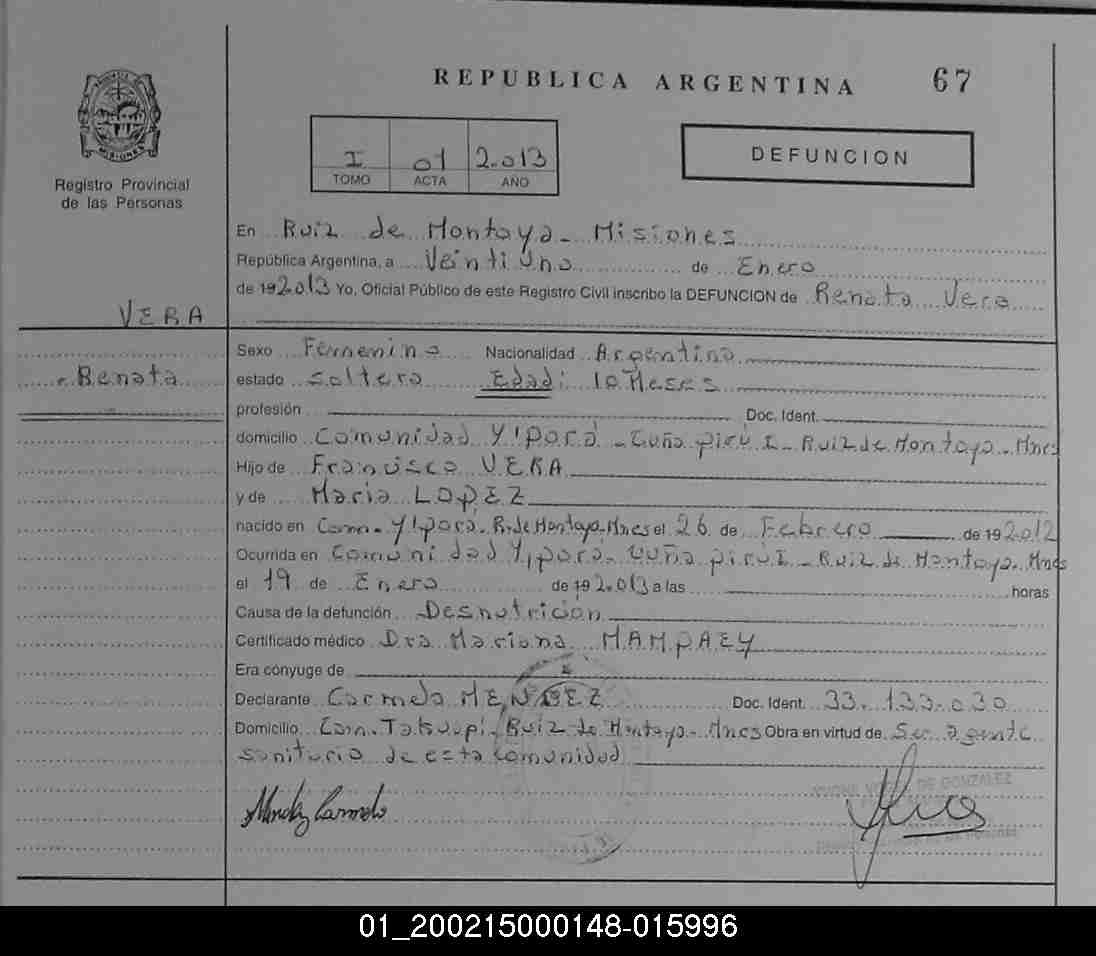 REPUBLICA ARGENTINA 67
MISIONES
Registro Provincial
de las Personas
I 01 2.013
TOMO ACTA AÑO
DEFUNCION
En Ruiz de Montoya - Misiones
República Argentina, a Veintiuno de Enero
de 19 2.013 Yo, Oficial Público de este Registro Civil inscribo la DEFUNCION de Renata Vera
VERA
- Renata
Sexo Femenino Nacionalidad Argentina
estado soltera Edad: 10 Meses
profesión Doc. Ident.
domicilio Comunidad Y!porá - Cuña pirú I - Ruiz de Montoya - Mnes
Hijo de Francisco VERA
y de Maria LOPEZ
nacido en Com. Y!porá - R. de Montoya - Mnes el 26 de Febrero de 19 2012
Ocurrida en Comunidad Y!pora - Cuña pirú I - Ruiz de Montoya - Mnes
el 19 de Enero de 19 2.013 a las horas
Causa de la defunción Desnutrición
Certificado médico Dra Mariana MAMPAEY
Era cónyuge de
Declarante Carmelo MENDEZ Doc. Ident. 33.133.030
Domicilio Com. Takuapi - Ruiz de Montoya - Mnes Obra en virtud de Ser agente
sanitario de esta comunidad
Mendez Carmelo
DE GONZALEZ
01_200215000148-015996